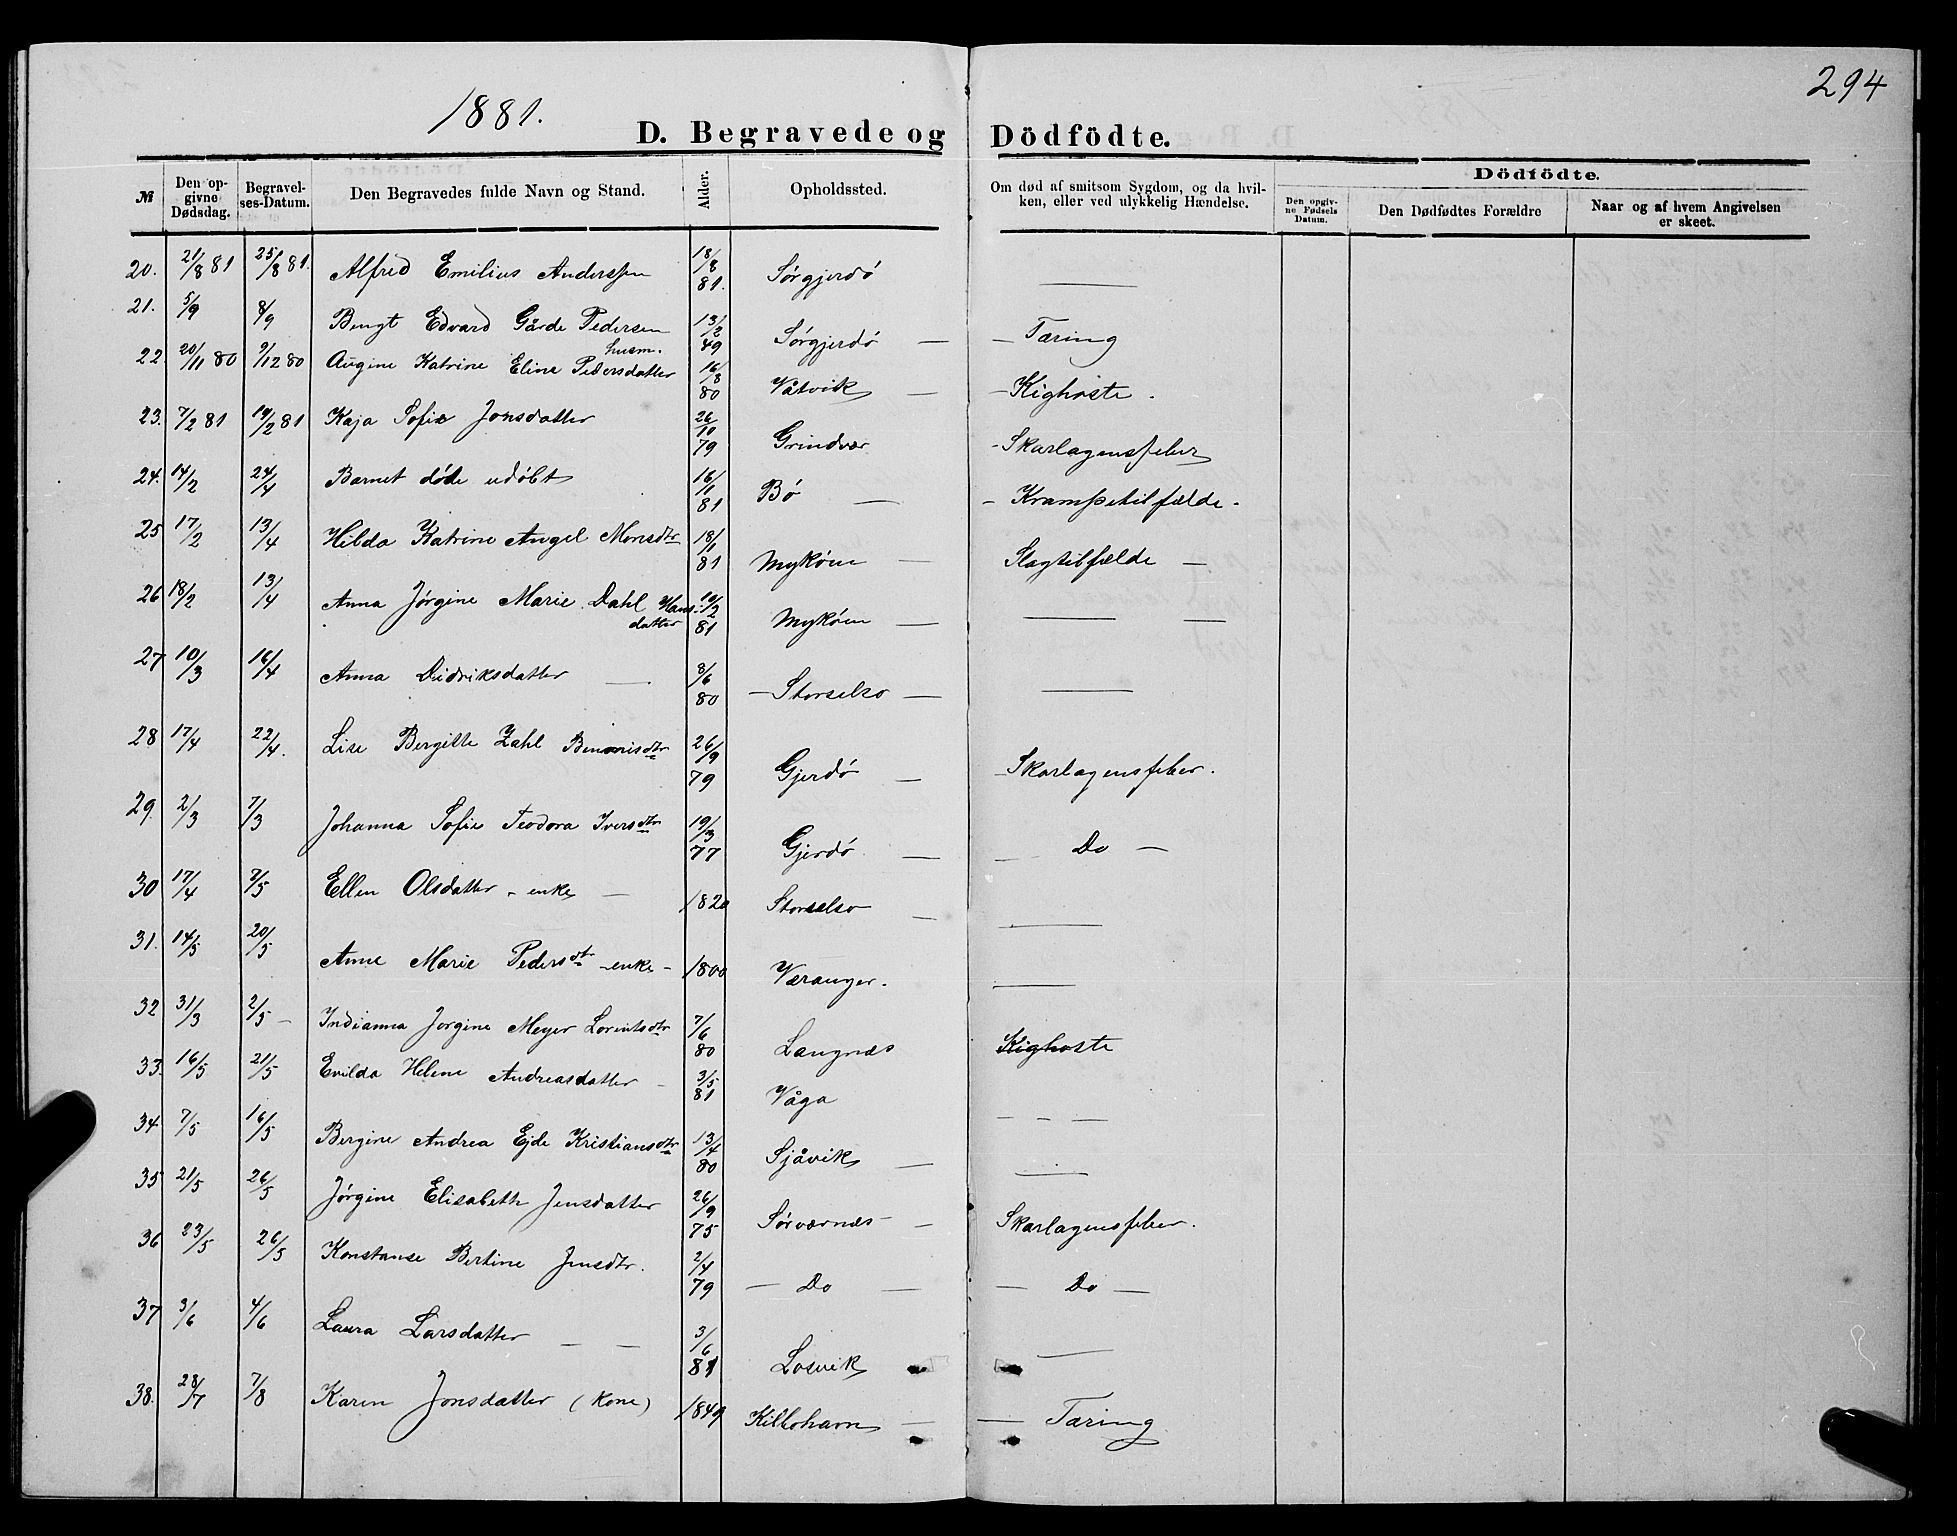 294
1881.
D. Begravede og Dödfödte.
№ Den opgivne Dødsdag. Begravelses-Datum. Den Begravedes fulde Navn og Stand. Alder. Opholdssted. Om død af smitsom Sygdom, og da hvilken, eller ved ulykkelig Hændelse. Dödfödte. Den opgivne Fødsels Datum. Den Dødfødtes Forældre Naar og af hvem Angivelsen er skeet.
20. 21/8 81 25/8 81. Alfred Emilius Anderssen 18/8 81. Sørgjerdø —
21. 5/9 8/9 Bengt Edvard Gårde Pedersen husm. 13/2 49 Sørgjerdø — — Tæring
22 20/11 80 9/12 80 Augine Katrine Eline Pedersdatter 16/8 80 Våtvik — — Kighoste.
23. 7/2 81 19/2 81 Kaja Sofie Jonsdatter 26/10 79 Grindvær - Skarlagensfeber
24. 14/2 24/4 Barnet døde udøbt 16/1 81 Bø — - Krampetilfælde -
25 17/2 13/4 Hilda Katrine Angel Monsdtr 18/1 81 Mykøen — Slagtilfælde —
26 18/2 13/4 Anna Jørgine Marie Dahl Hansdatter 10/2 81 Mykøen — — —
27 10/3 16/4 Anna Didriksdatter — 8/6 80 — Storselsø — —
28 17/4 22/4. Lise Bergitte Zahl Benonisdtr 26/9 79 Gjerdø — - Skarlagensfeber.
29. 2/3 7/3 Johanna Sofie Teodora Iversdtr 19/3 77 Gjerdø — — Do —
30 17/4 8/5 Ellen Olsdatter - enke — 1820 Storselsø — —
31. 14/5 20/5 Anne Marie Pedersdtr - enke - 1800 Væranger. —
32 31/3 2/5 — Indianna Jørgine Meyer Lorentsdtr 7/6 80 Langnæs Kighoste
33. 16/5 21/5 Evilda Helene Andreasdatter - 3/5 81 Våga — — —
34 7/5 16/5 Bergine Andrea Ejde Kristiansdtr 13/4 80 Sjåvik — —
35 21/5 26/5 Jørgine Elisabeth Jensdatter 26/9 75 Sørværnæs — Skarlagensfeber.
36 23/5 26/5 Konstanse Bertine Jensdtr. 2/4 79 — Do — — Do —
37 3/6 4/6 Laura Larsdatter — — 3/6 81 Losvik —
38. 28/7 7/8 Karen Jonsdatter (kone) 1849 Kilbohavn — — Tæring